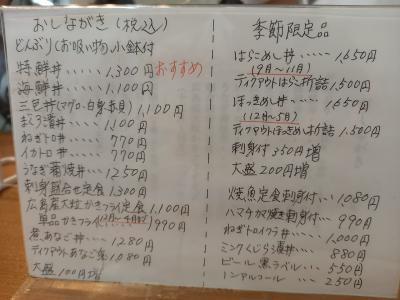 おしながき(税込)
どんぶり(お吸い物、小鉢付
特鮮丼・・・・・1,300円 おすすめ
海鮮丼・・・・・1,100円
三色丼(マグロ・白身・赤貝)1,100円
まぐろ漬丼・・・1,100円
ねぎトロ丼・・・770円
イカトロ丼・・・770円
うなぎ蒲焼丼・・・1250円
刺身盛合せ定食・1,300円
広島産大粒かきフライ定食・1,100円
単品かきフライ(12月~4月まで)990円
煮あなご丼・・・1280円
テイクアウトあなご弁 1080円
大盛 100円増
季節限定品
はらこめし丼・・・1,650円
(9月~11月)
テイクアウトはらこ折詰1,500円
ほっきめし丼・・・1,650円
(12月~5月)
テイクアウトほっきめし折詰1,500円
刺身付 350円増
大盛 200円増
焼魚定食刺身付・・・1,080円
ハマチカマ焼き刺身付・・990円
ねぎトロイクラ丼・・・1,000円
ミンクくじら漬丼・・・880円
ビール 黒ラベル・・・550円
ノンアルコール・・・250円